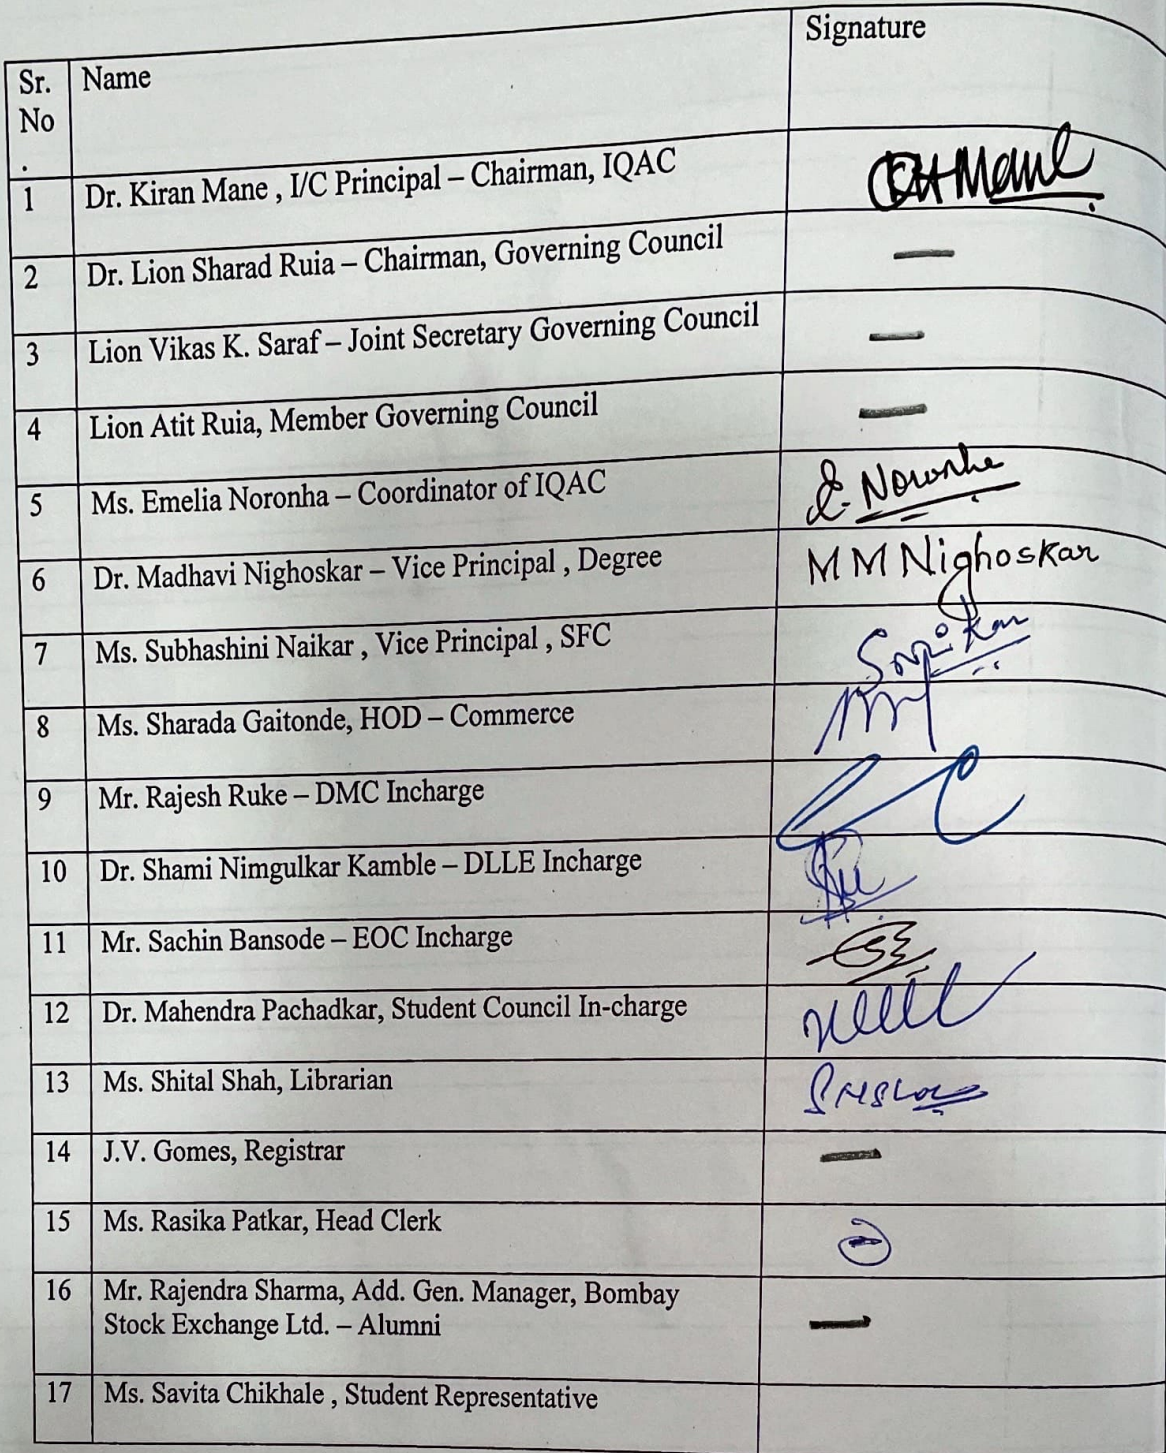 Signature
Sr. Name
No
.
1 Dr. Kiran Mane , I/C Principal – Chairman, IQAC Mane
2 Dr. Lion Sharad Ruia – Chairman, Governing Council —
3 Lion Vikas K. Saraf – Joint Secretary Governing Council —
4 Lion Atit Ruia, Member Governing Council —
5 Ms. Emelia Noronha – Coordinator of IQAC E. Noronha
6 Dr. Madhavi Nighoskar – Vice Principal , Degree M M Nighoskar
7 Ms. Subhashini Naikar , Vice Principal , SFC
8 Ms. Sharada Gaitonde, HOD – Commerce
9 Mr. Rajesh Ruke – DMC Incharge
10 Dr. Shami Nimgulkar Kamble – DLLE Incharge
11 Mr. Sachin Bansode – EOC Incharge
12 Dr. Mahendra Pachadkar, Student Council In-charge
13 Ms. Shital Shah, Librarian
14 J.V. Gomes, Registrar —
15 Ms. Rasika Patkar, Head Clerk
16 Mr. Rajendra Sharma, Add. Gen. Manager, Bombay
Stock Exchange Ltd. – Alumni —
17 Ms. Savita Chikhale , Student Representative